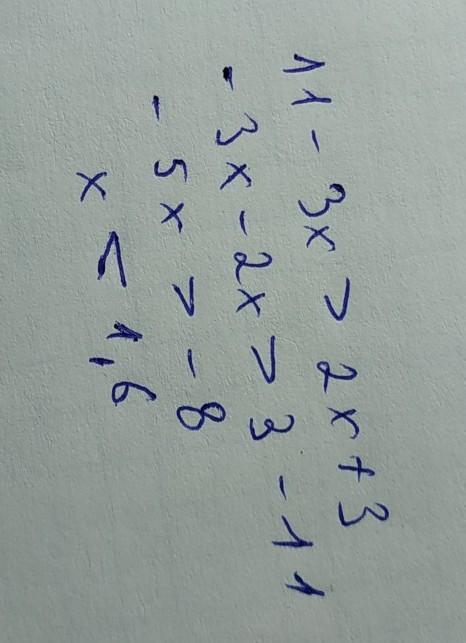 11 - 3x > 2x + 3
- 3x - 2x > 3 - 11
- 5x > - 8
x < 1,6